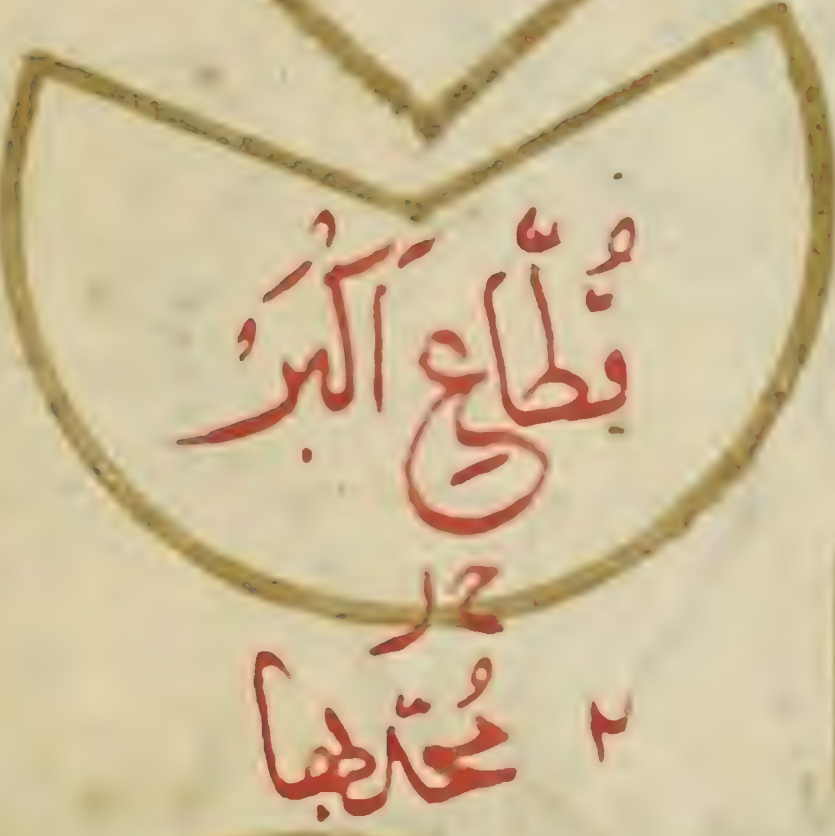 قُطَّاعِ اَكْبَرْ
مُحَدَّبهَا
٢